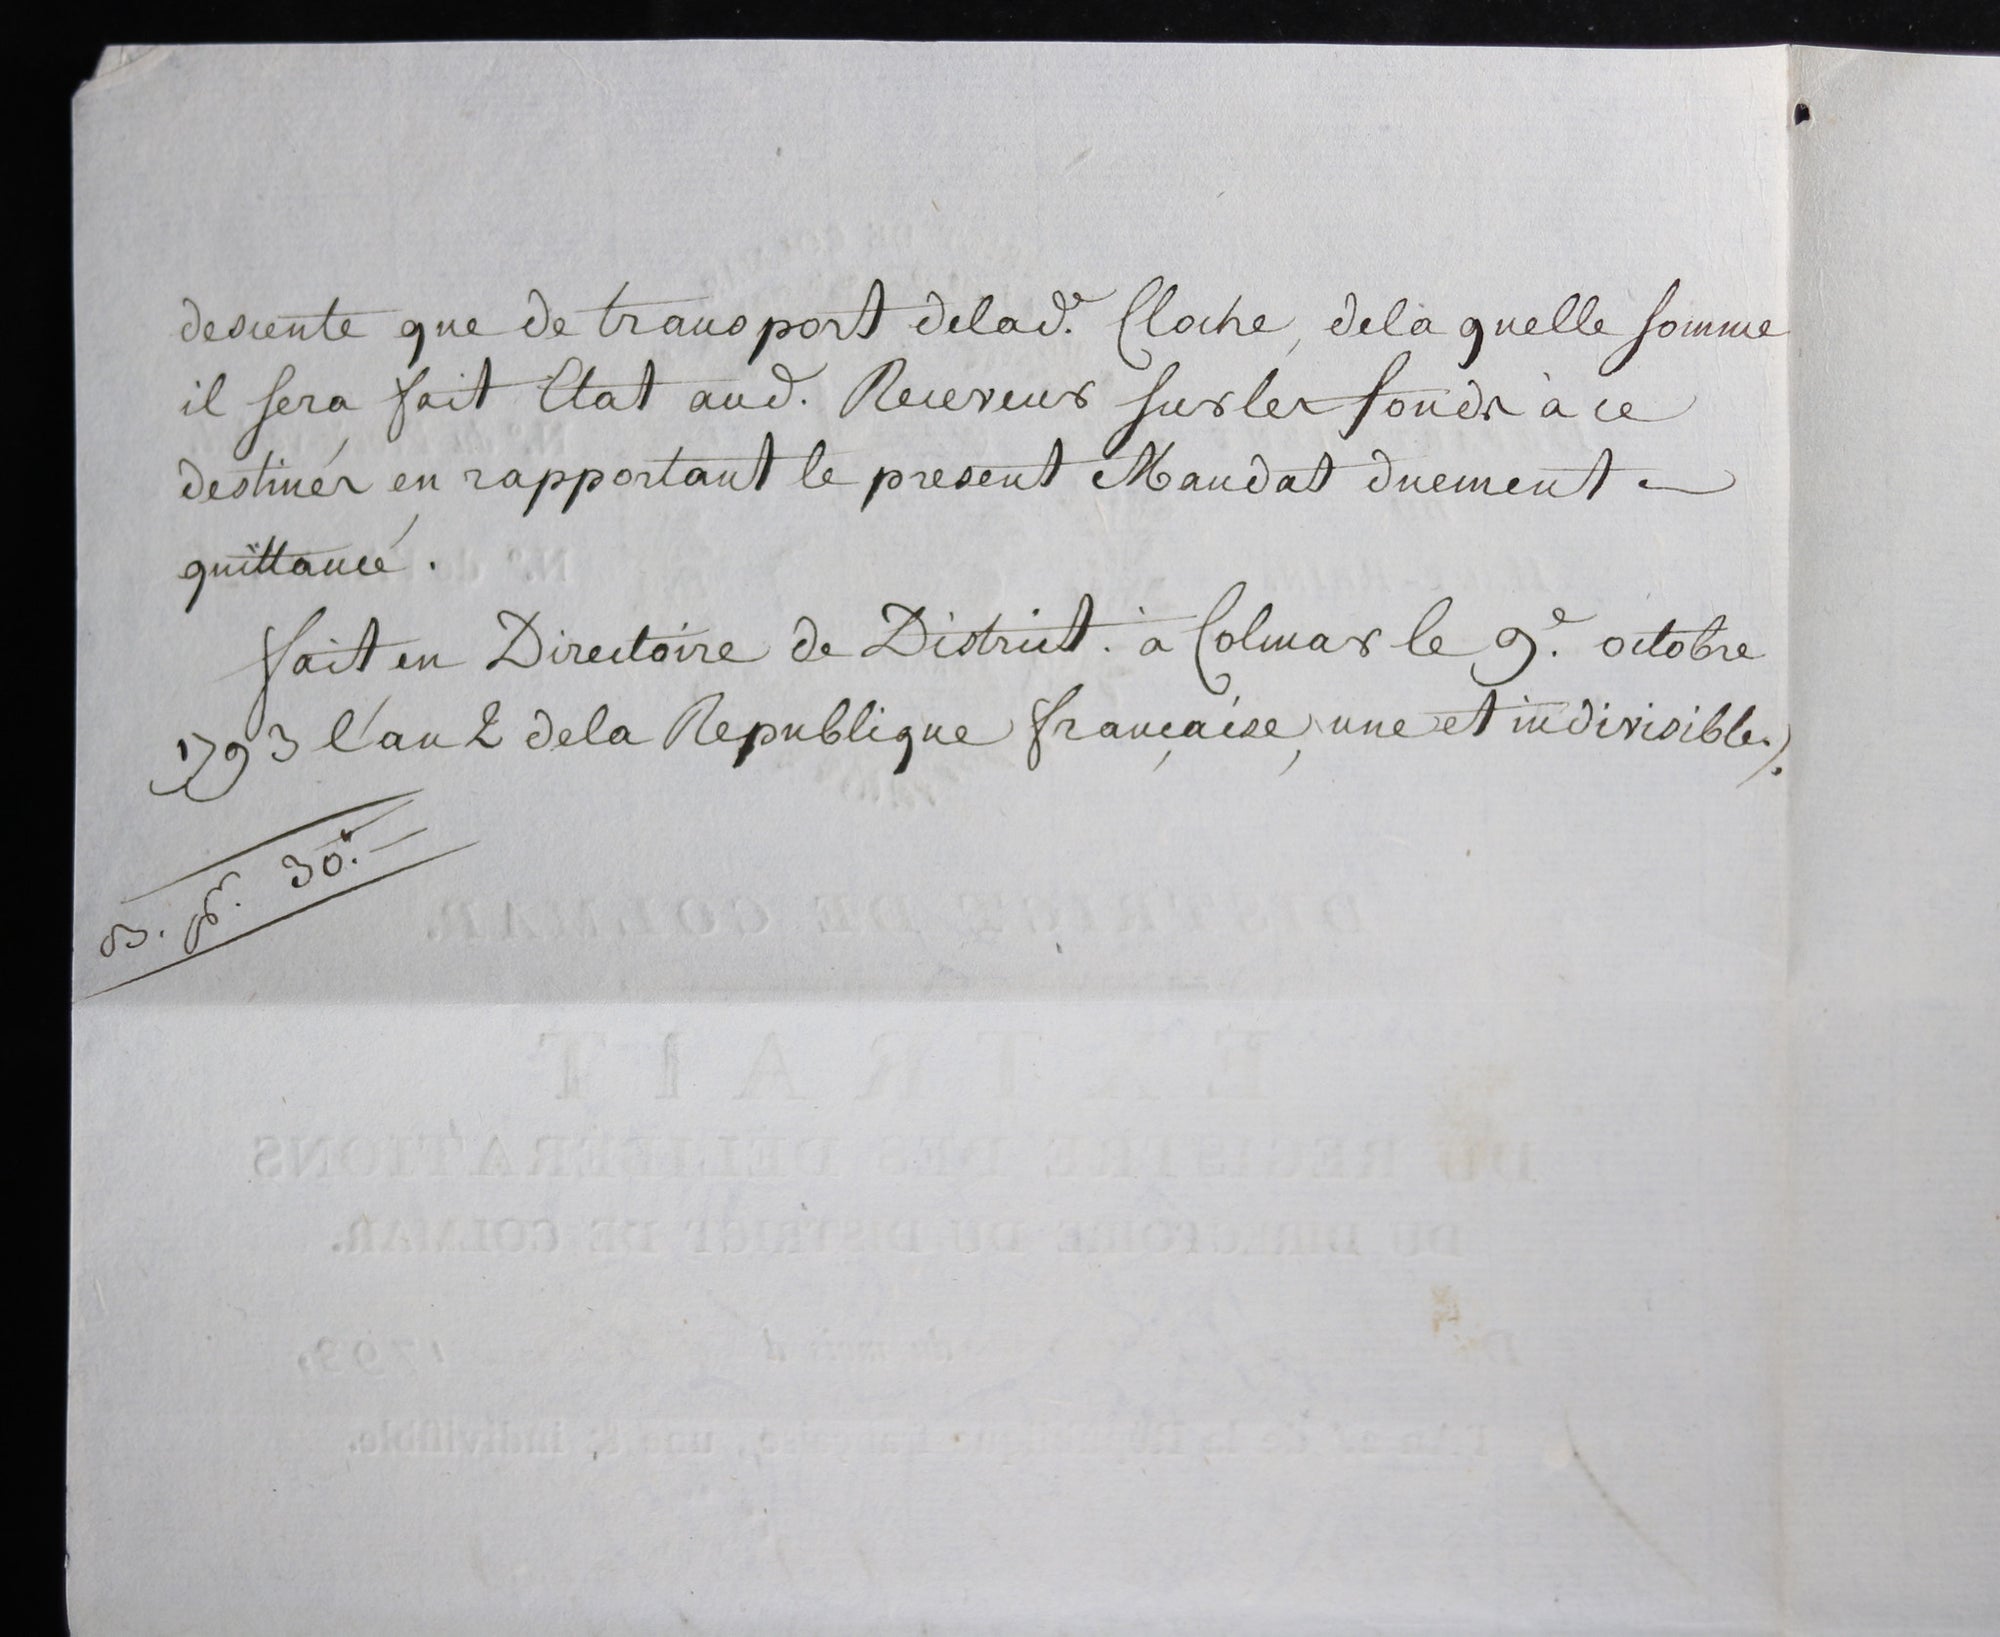 descente que de transport delad.e Cloche, dela quelle somme
il sera fait Etat aud. Receveur sur les fonds à ce
destinés en rapportant le present Mandat duement —
quittancé.
fait en Directoire de District. à Colmar le 9.e octobre
1793 l'an 2 dela Republique française, une et indivisible.).
B. pr. 30.#
DISTRICT DE COLMAR.
EXTRAIT
DU REGISTRE DES DÉLIBÉRATIONS
DU DIRECTOIRE DU DISTRICT DE COLMAR.
Du du mois d 1793,
l'An 2e de la République française, une & indivisible.